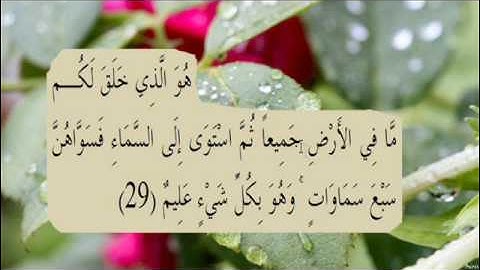 هُوَ الَّذِي خَلَقَ لَكُـــم
مَّا فِي الأَرْضِ جَمِيعاً ثُمَّ اسْتَوَى إِلَى السَّمَاءِ فَسَوَّاهُنَّ
سَبْعَ سَمَاوَاتٍ ۚ وَهُوَ بِكُلِّ شَيْءٍ عَلِيمٌ (29)